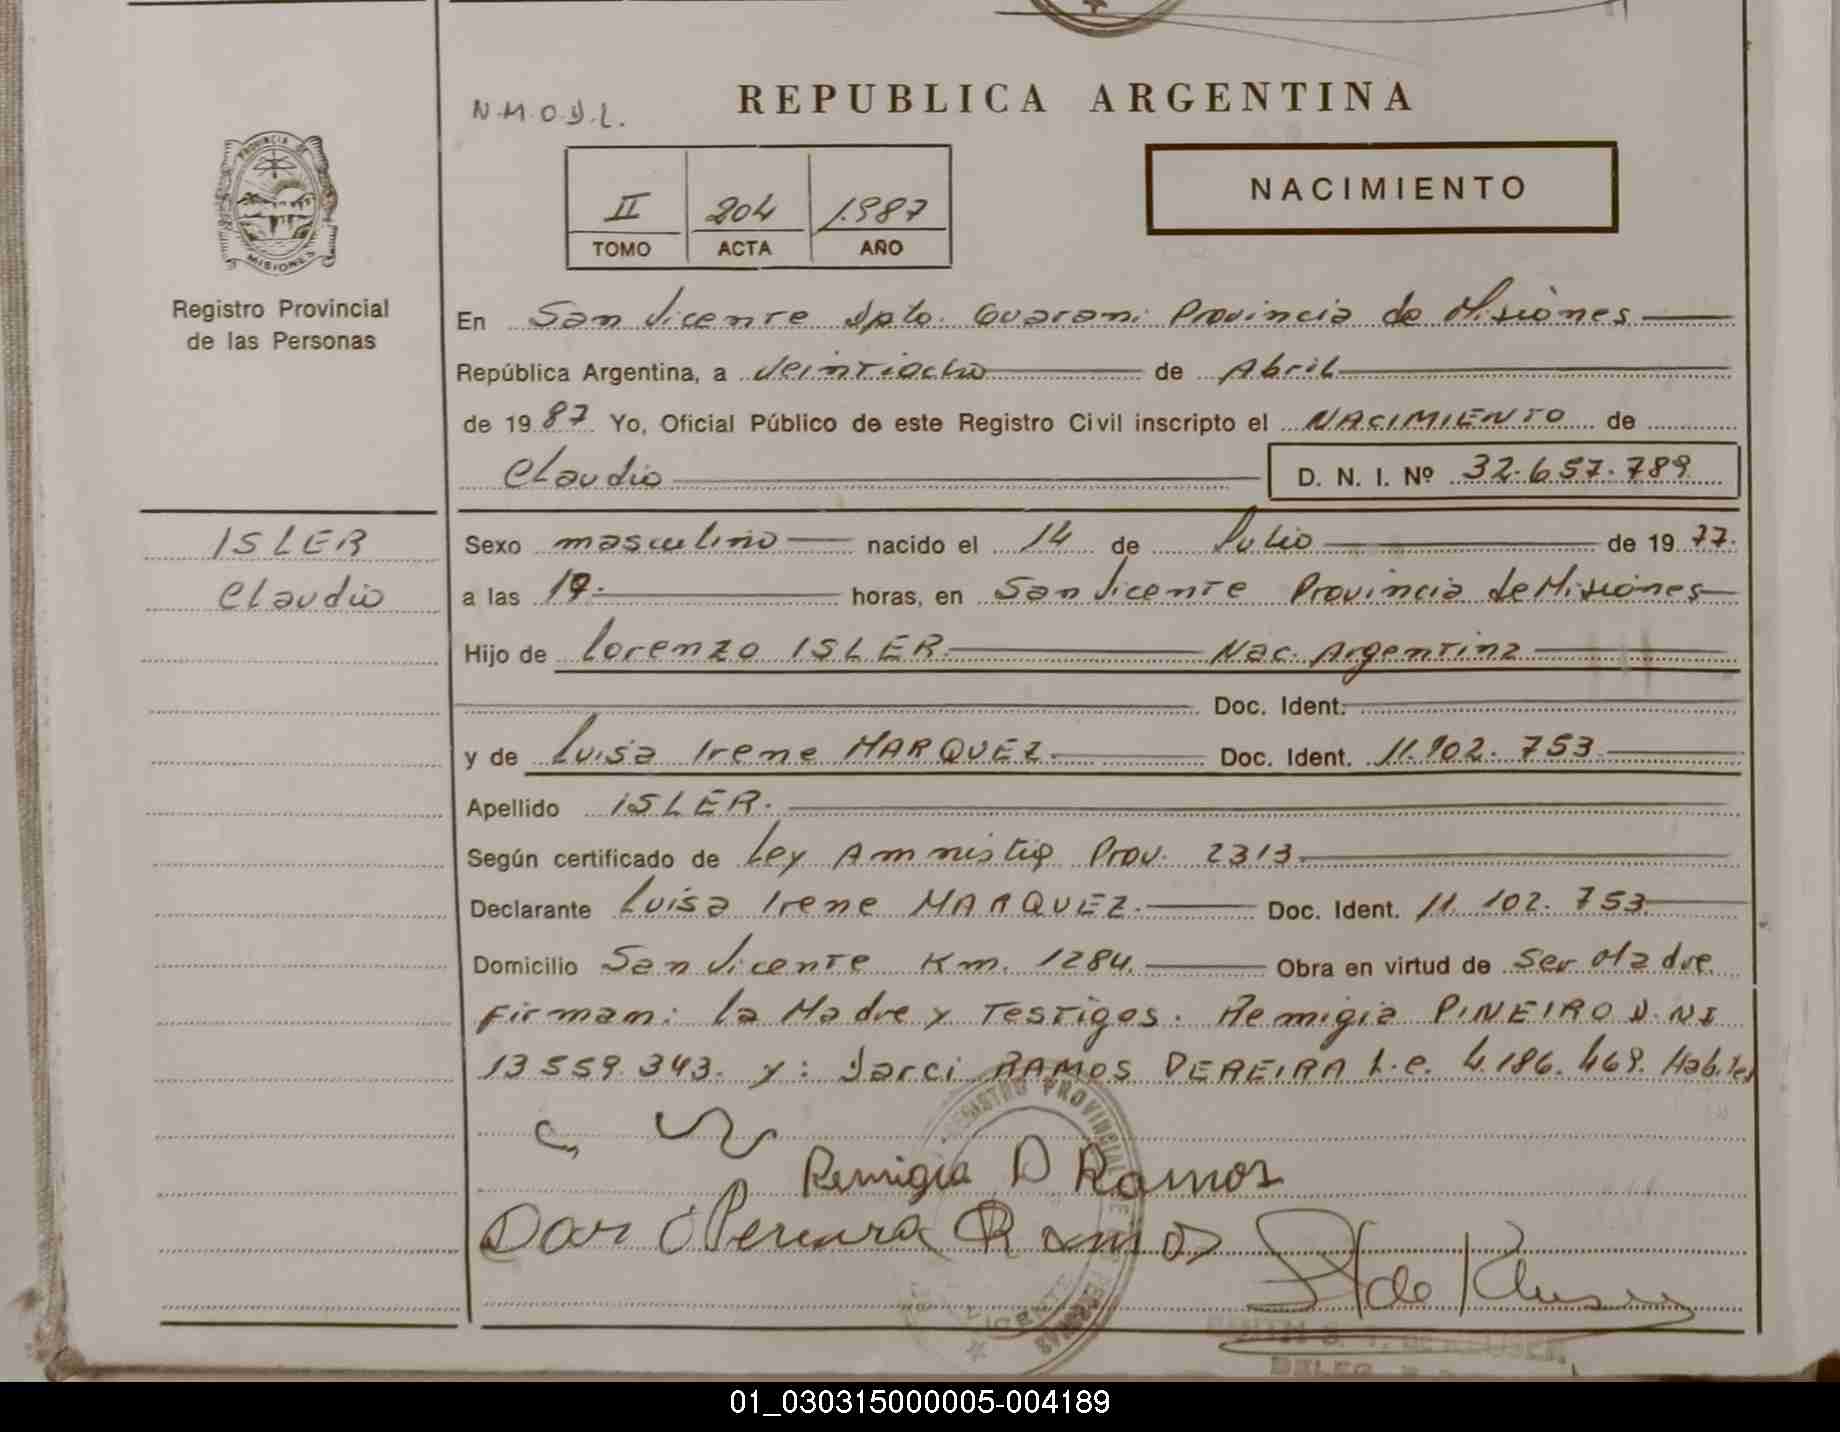 REPUBLICA ARGENTINA
N.M.O.D.L.
PROVINCIA DE
MISIONES
Registro Provincial
de las Personas
II 204 1.987
TOMO ACTA AÑO
NACIMIENTO
En San Vicente Dpto. Guarani Provincia de Misiones
República Argentina, a Veintiocho de Abril
de 19 87 Yo, Oficial Público de este Registro Civil inscripto el NACIMIENTO de
Claudio D. N. I. Nº 32.657.789
ISLER
Claudio
Sexo masculino nacido el 14 de Julio de 19 77.
a las 19. horas, en San Vicente Provincia de Misiones
Hijo de Lorenzo ISLER. Nac. Argentina
Doc. Ident.
y de Luisa Irene MARQUEZ. Doc. Ident. 11.102.753
Apellido ISLER.
Según certificado de Ley Amnistia Prov. 2313
Declarante Luisa Irene MARQUEZ. Doc. Ident. 11.102.753
Domicilio San Vicente Km. 1284. Obra en virtud de Ser Madre
Firman: la Madre y Testigos. Remigia PINEIRO D.NI
13 559.343. y: Darci RAMOS PEREIRA L.e. 4.186.469. Habiles
REGISTRO PROVINCIAL DE
Remigia D Ramos
Dar Pereira Ramos
de
VICENTE
DELEG.
01_030315000005-004189